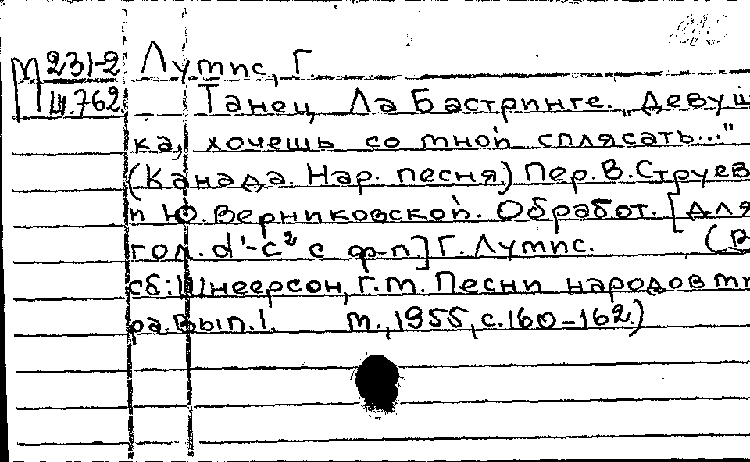 М 231-2 Лумис, Г.
Ш.762 Танец Ла Бастринге. "Девуш
ка, хочешь со мной сплясать..."
(Канада. Нар. песня.) Пер. В. Струев
и Ю. Верниковской. Обработ. [для
гол. d¹-c² с ф-п.] Г. Лумис. (В
сб: Шнеерсон, Г.М. Песни народов ми
ра. Вып. 1. М., 1955, с. 160-162.)